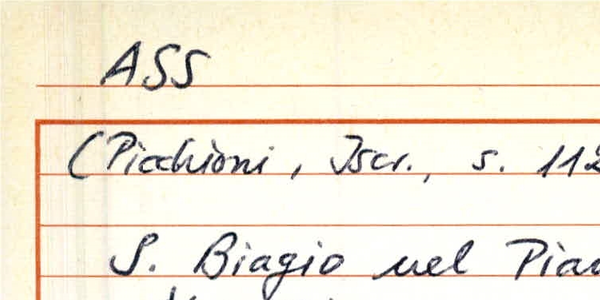 ASS
(Picchioni, Iscr., s. 112
S. Biagio nel Pian